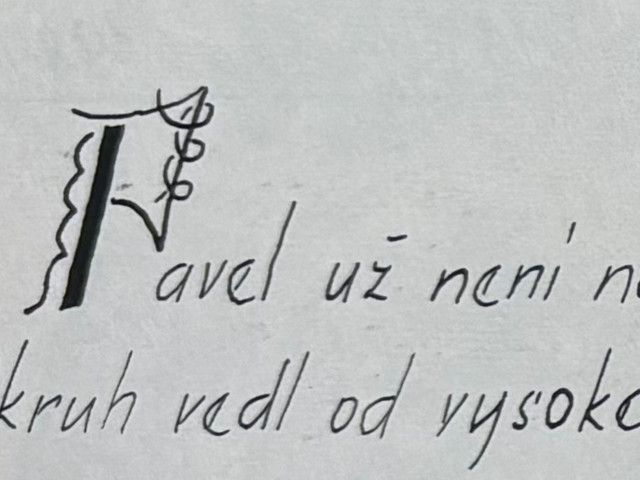 Pavel už není n
kruh vedl od vysoko